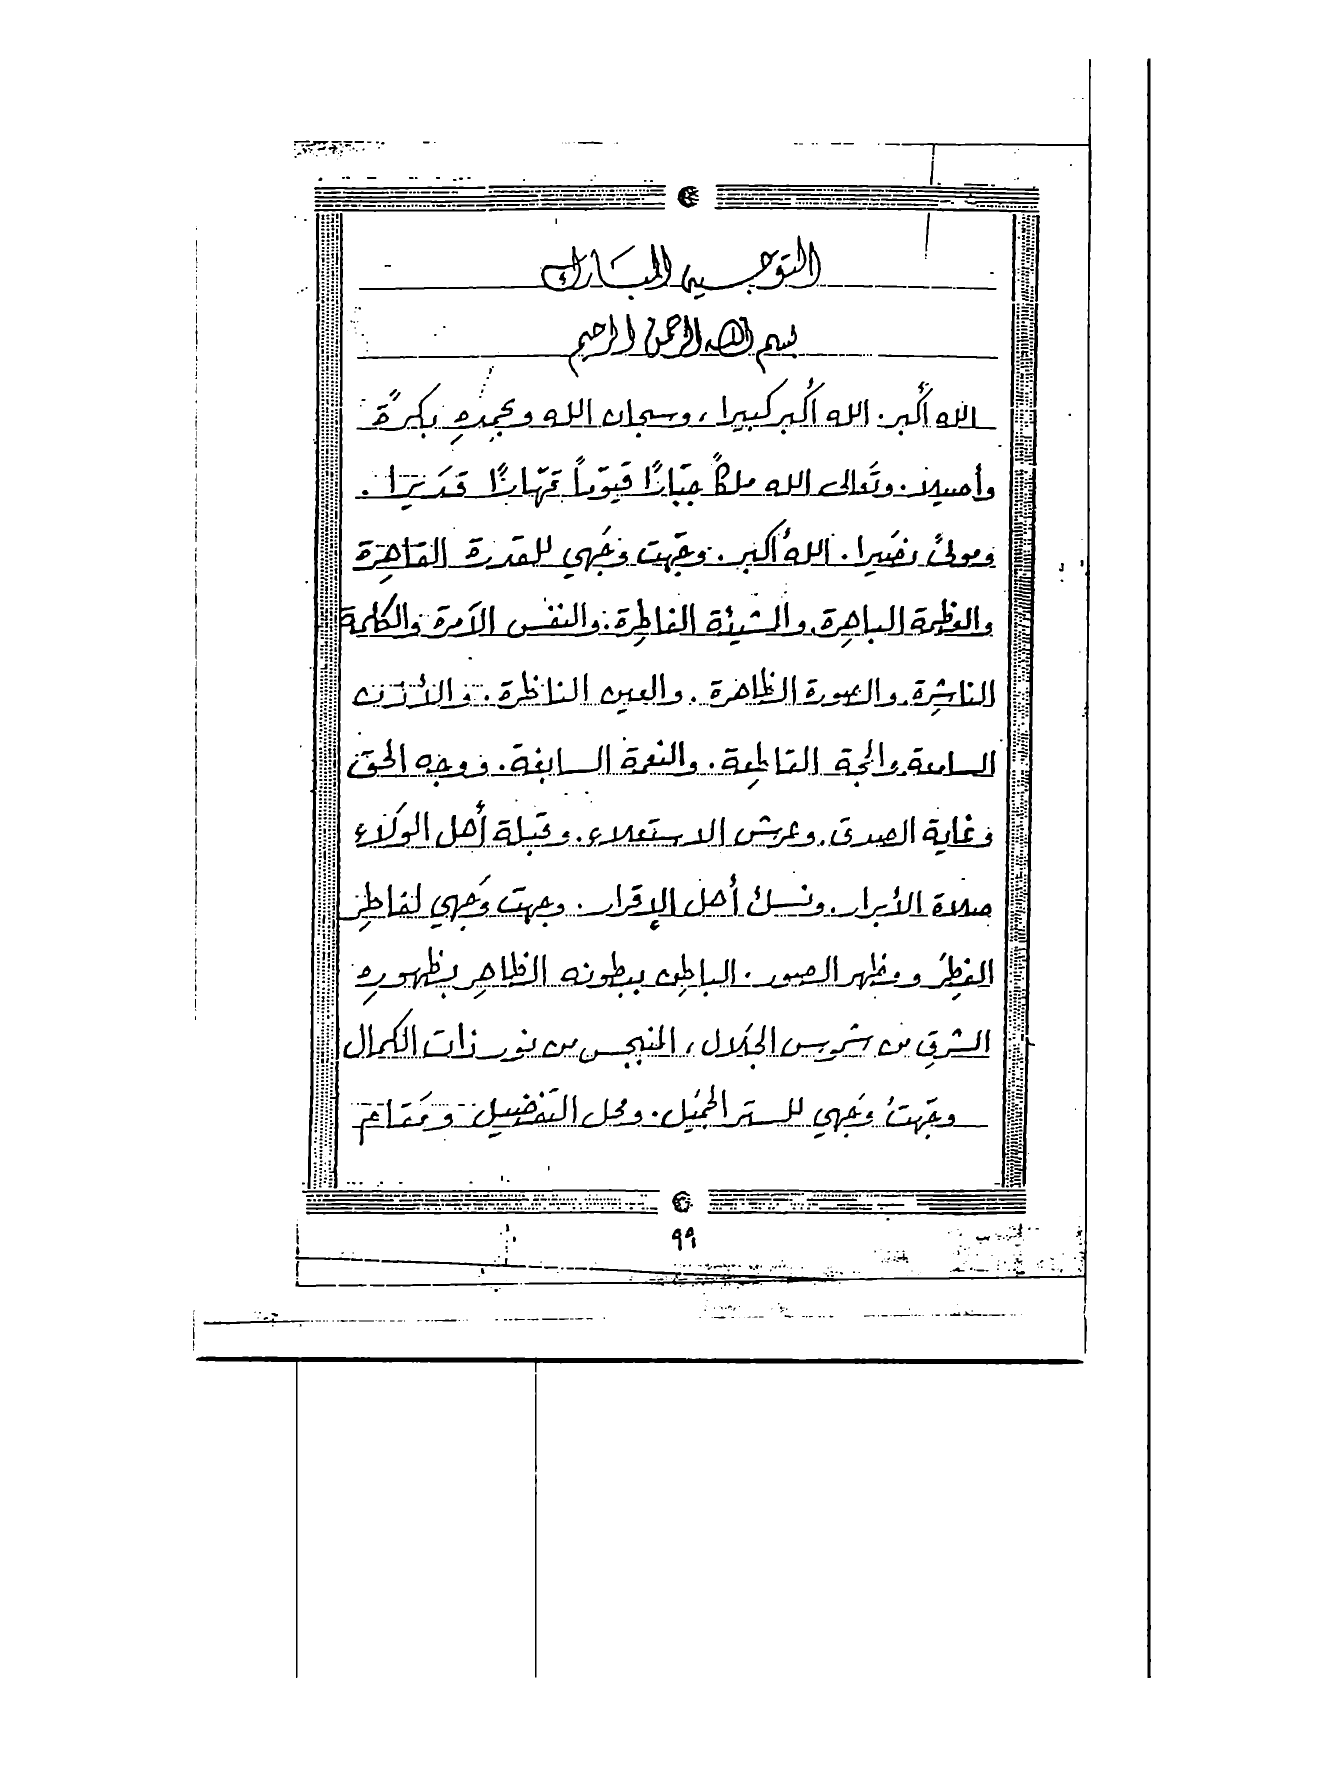 التوجيه المبارك
بسم الله الرحمن الرحيم
الله أكبر. الله أكبر كبيرا، وسبحان الله وبحمدهِ بكرةً
وأصيلا. وتَعالى الله ملكاً جبّارًا قيّوماً قهّارًا قَديَرا.
ومولىً نصَيرا. اللهُ أكبر. وجّهت وَجَهي للقدرة القاهِرَة
والعظمة الباهِرة. والمشيئة الفاطِرة. والنفس الآمرة والكلمة
الناشِرة. والصورة الظاهرة. والعين الناظرة. والأذن
السامعة والحجة القاطِعة. والنعمة السابغة. ووجه الحقّ
وغاية الصدق. وعرش الاستعلاء. وقبلة أهل الوَلاء
صلاة الأبرار. ونسك أهل الإقرار. وجهت وَجَهي لفاطِرِ
الفِطَرُ ومظهر الصور. الباطِن ببطونه الظاهِر بظهورِه
المشرقِ من شموس الجَلال، المنبجس من نور ذات الكمال
وجّهتُ وَجَهي للستر الجَميل. ومحل التَفضيل ومَقام
٩٩